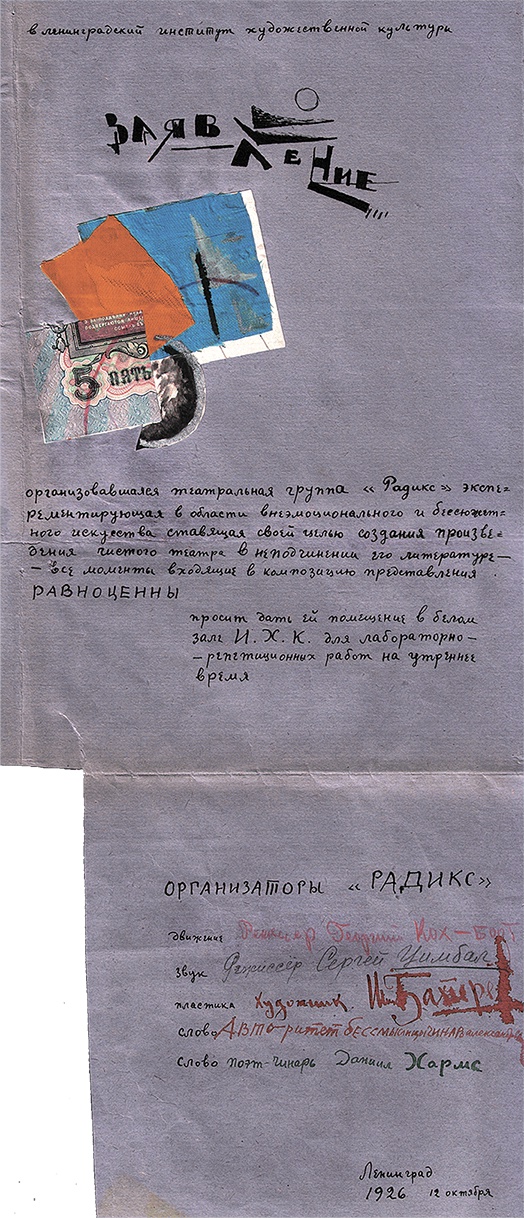 в ленинградский институт художественной культуры
ЗАЯВ
ЛеНие
ПОДВЕРГАЮТСЯ
5 ПЯТЬ
организовавшался театральная группа «Радикс» экспе=
рементирующая в области внеэмоционального и бессюжет=
ного искусства ставящая своей целью создания произве=
дения чистого театра в неподчинении его литературе—
— все моменты входящие в композицию представления .
РАВНОЦЕННЫ
просит дать ей помещение в белам
зале И. Х. К. для лабораторно —
— репетиционных работ на утреннее
время
ОРГАНИЗАТОРЫ «РАДИКС»
движение Режиссер Георгий Кох-Боот
звук Режиссёр Сергей Цимбал.
пластика художник
слово АВТО-ритет бессмыслицы ЧИНАРь
слово поэт-чинарь Даниил Хармс
Ленинград
1926 12 октября